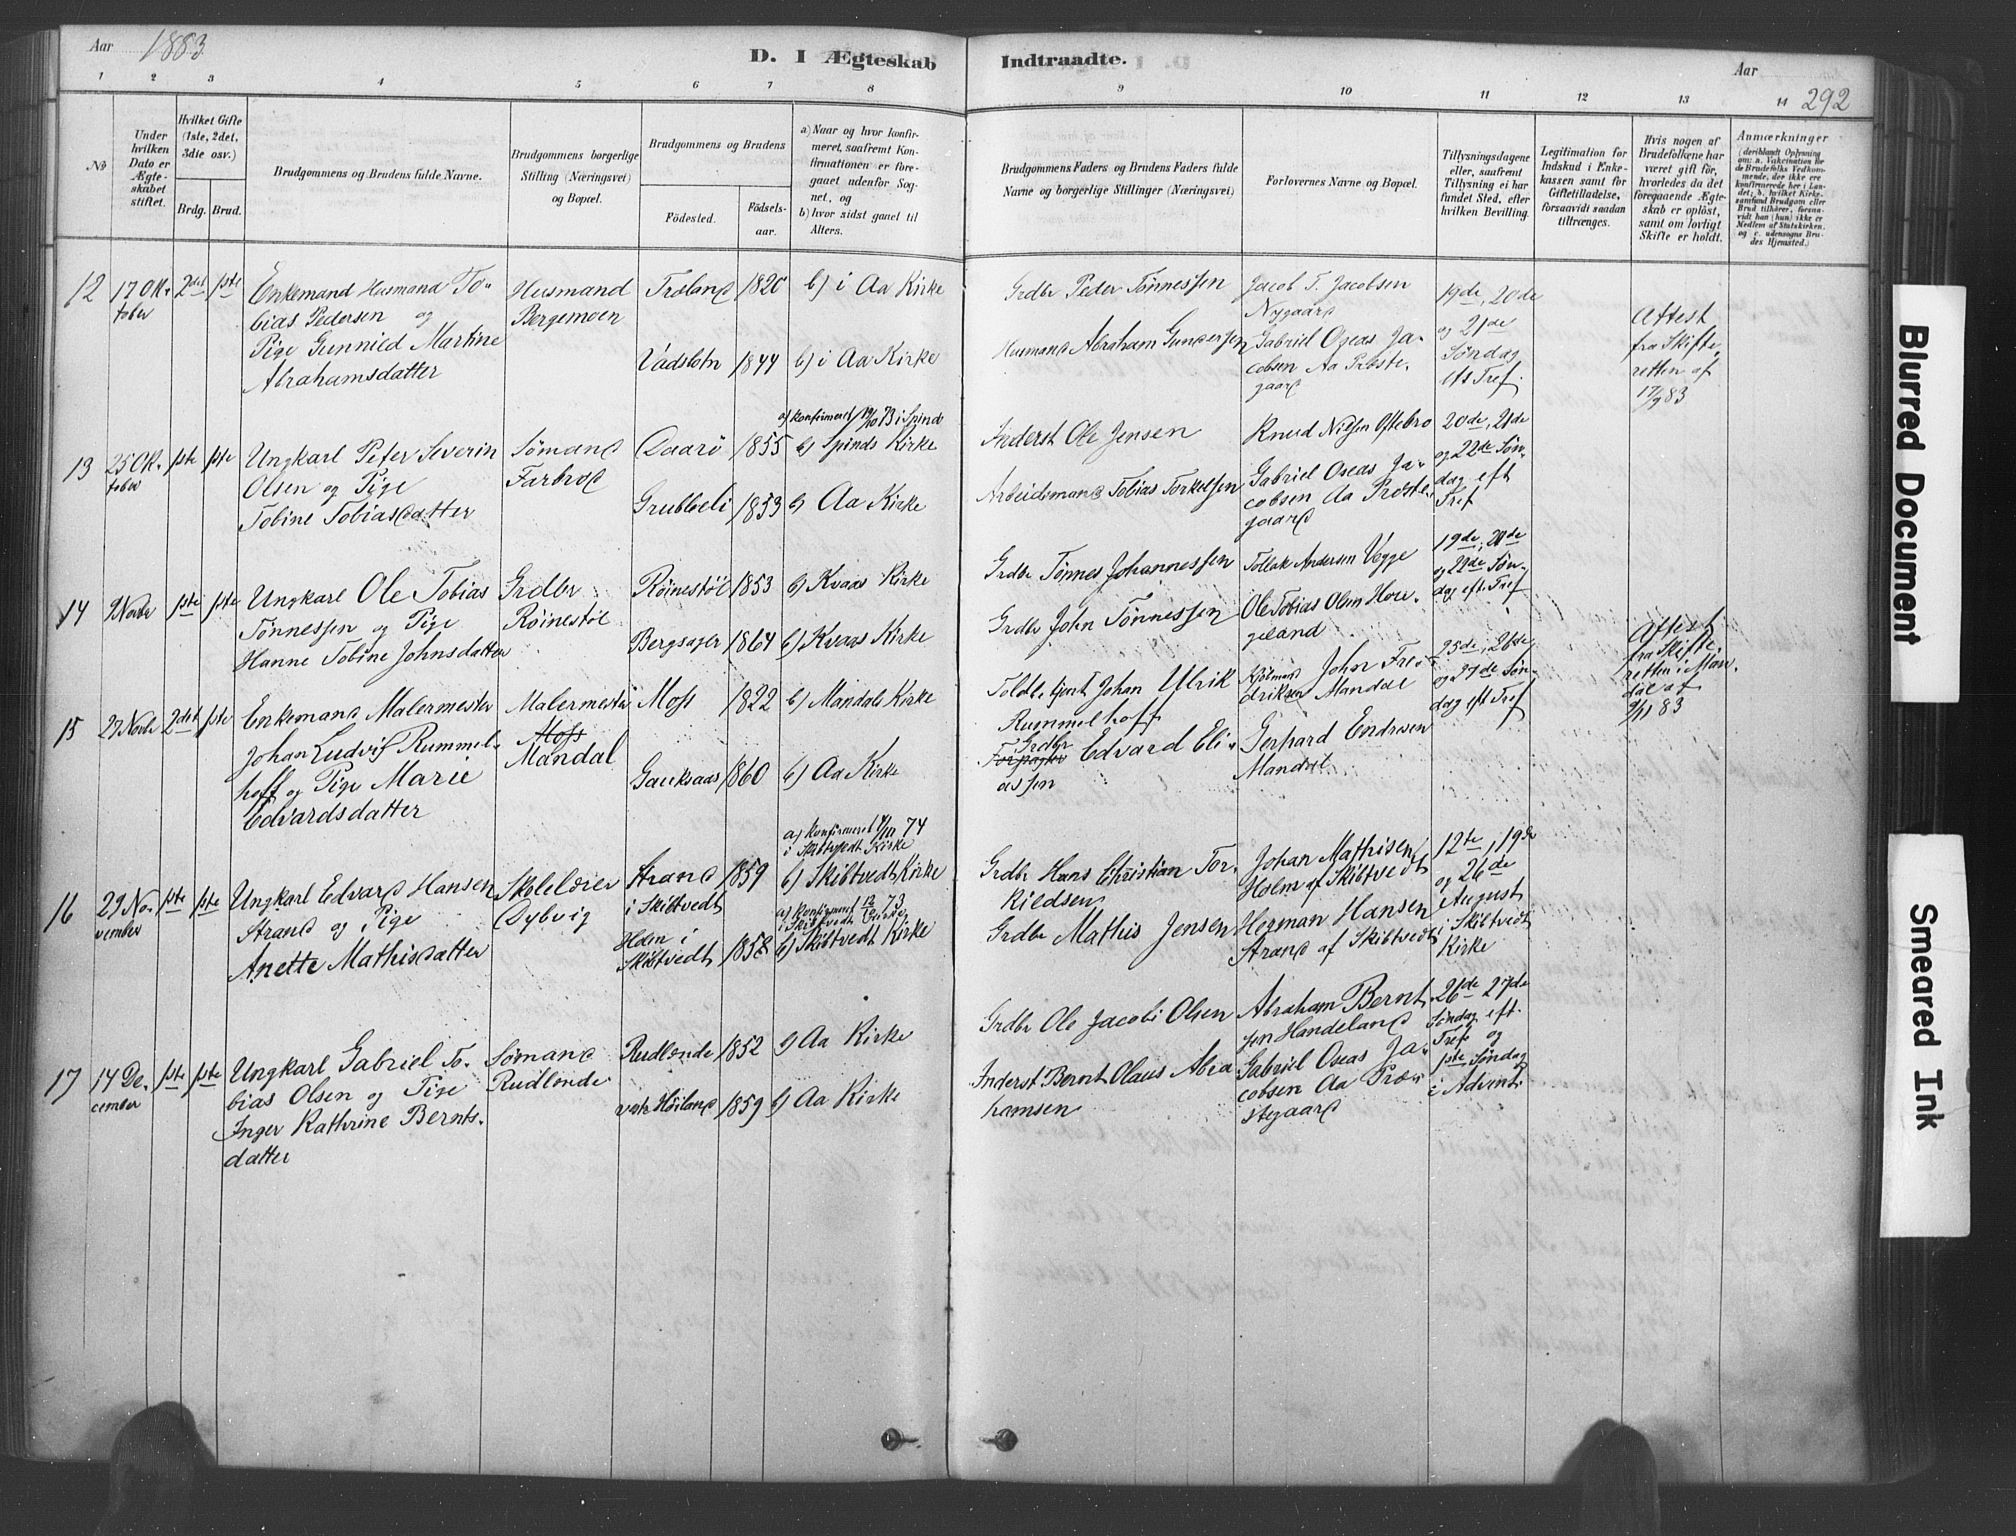 Aar 1883
D. I Ægteskab Indtraadte.
Aar
292
1 2 3 4 5 6 7 8 9 10 11 12 13 14
No
Under hvilken Dato er Ægteskabet stiftet.
Hvilket Gifte (1ste, 2det, 3die osv.)
Brdg. Brud.
Brudgommens og Brudens fulde Navne.
Brudgommens borgerlige Stilling (Næringsvei) og Bopæl.
Brudgommens og Brudens
Fødested.
Fødselsaar.
a) Naar og hvor konfirmeret, saafremt Konfirmationen er foregaaet udenfor Sognet, og
b) hvor sidst gaaet til Alters.
Brudgommens Faders og Brudens Faders fulde Navne og borgerlige Stillinger (Næringsvei)
Forlovernes Navne og Bopæl.
Tillysningsdagene eller, saafremt Tillysning ei har fundet Sted, efter hvilken Bevilling.
Legitimation for Indskud i Enkekassen samt for Giftetilladelse, forsaavidt saadan tiltrænges.
Hvis nogen af Brudefolkene har været gift før, hvorledes da det foregaaende Ægteskab er opløst, samt om lovligt Skifte er holdt.
Anmærkninger
12 17 Oktober 2det 1ste
Enkemand Husmand To-
bias Pedersen og
Pige Gunnild Martine
Abrahamsdatter
Husmand
Bergemoen
Troland 1820 b) i Aa Kirke
1844 b) i Aa Kirke
Grdbr Peder Tønnessen
Husmand Abraham Gundersen
Jacob T. Jacobsen
Nygaard
Gabriel Oseas Ja-
cobsen Aa Præste-
gaard
19de, 20de
og 21de
Søndag
eft Tref.
Attest
fra Skifte-
retten af
17/9 83
13 25 Oktober 1ste 1ste
Ungkarl Peter Severin
Olsen og Pige
Tobine Tobiasdatter
Sømand
Farbrod
Daarø 1855
a) Konfirmeret 19/10 73 i Spind
b) Spinds Kirke
Grubbeli 1853 b) Aa Kirke
Inderst Ole Jensen
Arbeidsmand Tobias Torkelsen
Knud Nilsen Oftebro
Gabriel Oseas Ja-
cobsen Aa Præste-
gaard
20de, 21de
og 22de Søn-
dag eft
Tref
14 9 Novbr 1ste 1ste
Ungkarl Ole Tobias
Tønnessen og Pige
Hanne Tobine Johnsdatter
Grdbr
Røinestøl
Røinestøl 1853 b) Kvaas Kirke
Bergsager 1864 b) Kvaas Kirke
Grdbr Tønnes Johannessen
Grdbr John Tønnessen
Tollak Andersen Vegge
Ole Tobias Olsen Hore-
geland
19de, 20de
og 22de Søn-
dag eft. Tref
15 27 Novbr 2det 1ste
Enkemand Malermester
Johan Ludvig Rummel-
hoff og Pige Marie
Edvardsdatter
Malermester
Moss
Mandal
Moss 1822 b) Mandals Kirke
Gauksaas 1860 b) Aa Kirke
Toldbetjent Johan Ulrik
Rummelhoff
Grdbr
Edvard Eli-
assen
Kjøbmand John Fre-
driksen Mandal
Gerhard Endresen
Mandal
25de, 26de
og 27de Søn-
dag eft Tref
Attest
fra Skifte-
retten i Man-
dal af
9/11 83
16 29 November 1ste 1ste
Ungkarl Edvard Hansen
Strand og Pige
Anette Mathisdatter
Skolelærer
Dybvig
Strand
i Skibtvedt 1859
a) Konfirmeret 4/10 74
i Skibtvedt Kirke
b) Skibtvedt Kirke
Holm i
Skibtvedt 1858
a) Konfirmeret 12/10 73
i Skibtvedt Kirke
b) Skibtvedt Kirke
Grdbr Hans Christian Tor-
kildsen
Grdbr Mathis Jensen
Johan Mathisen
Holm af Skibtvedt
Herman Hansen
Strand af Skibtvedt
12te, 19de
og 26de
August
i Skibtvedt
Kirke
17 14 December 1ste 1ste
Ungkarl Gabriel To-
bias Olsen og Pige
Inger Kathrine Bernts-
datter
Sømand
Rudlende
Rudlende 1852 b) Aa Kirke
vestr Høiland 1859 b) Aa Kirke
Grdbr Ole Jacob Olsen
Inderst Bernt Olaus Abra
hamsen
Abraham Bernt-
sen Handeland
Gabriel Oseas Ja-
cobsen Aa Præ-
stegaard
26de 27de
Søndag eft.
Tref og
1ste Søndag
i Advent
Blurred Document
Smeared Ink